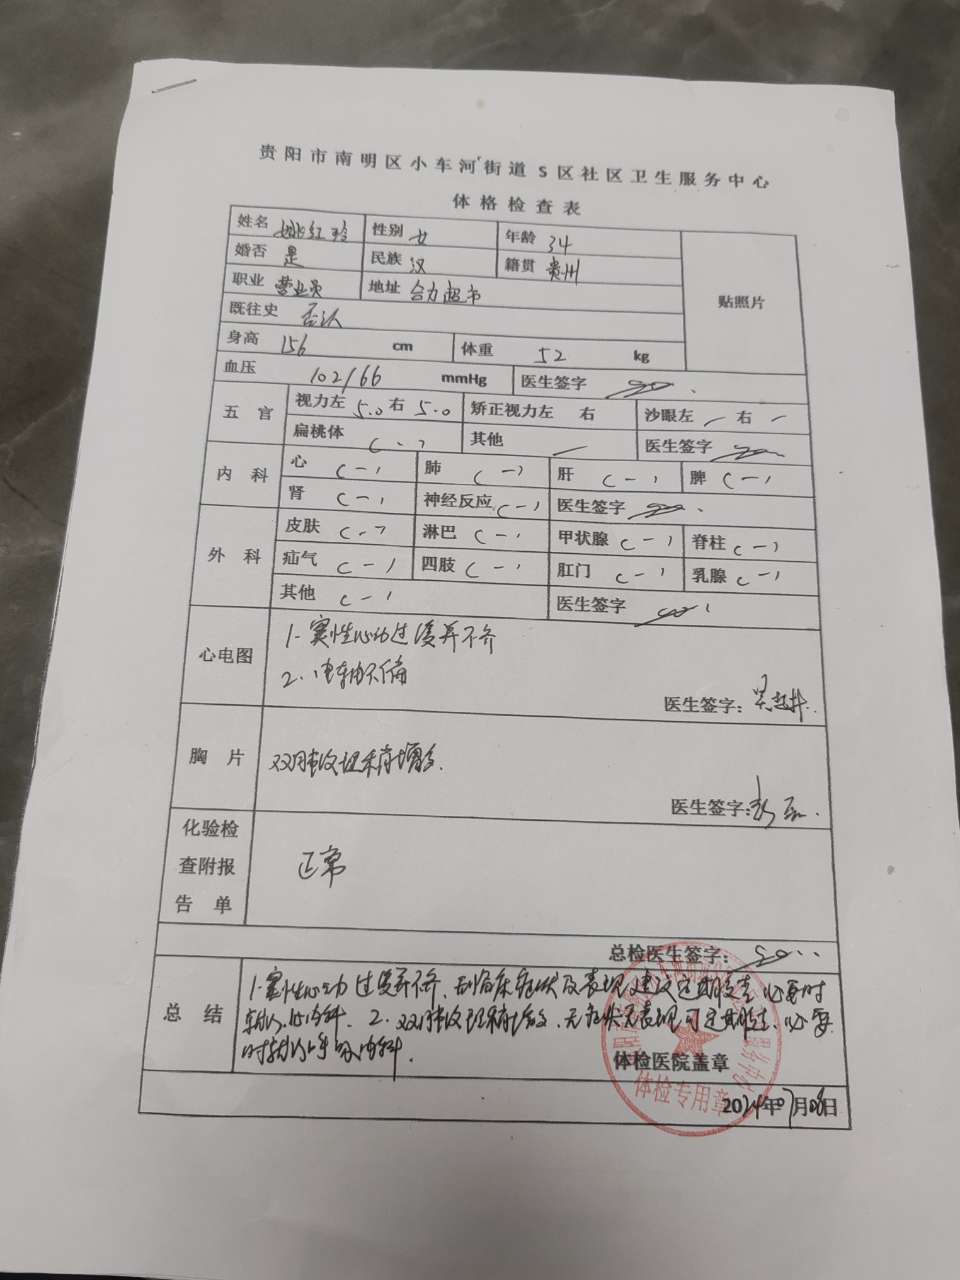 贵阳市南明区小车河街道S区社区卫生服务中心
体格检查表
姓名 姚红玲 性别 女 年龄 34
婚否 是 民族 汉 籍贯 贵州 贴照片
职业 营业员 地址 合力超市
既往史 否认
身高 156 cm 体重 52 kg
血压 102/66 mmHg 医生签字
五官 视力左 5.0 右 5.0 矫正视力左 右 沙眼左 — 右 —
扁桃体 (-) 其他 — 医生签字
内科 心 (-) 肺 (-) 肝 (-) 脾 (-)
肾 (-) 神经反应 (-) 医生签字
外科 皮肤 (-) 淋巴 (-) 甲状腺 (-) 脊柱 (-)
疝气 (-) 四肢 (-) 肛门 (-) 乳腺 (-)
其他 (-) 医生签字
心电图 1.窦性心动过缓并不齐
2.电轴不偏
医生签字:
胸片 双肺纹理稍增多.
医生签字:
化验检查附报告单 正常
总检医生签字:
总结 1.窦性心动过缓并不齐,无临床症状及表现,建议定期复查,必要时
转诊心内科. 2.双肺纹理稍增多,无症状无表现,可定期复查,必要
时转诊呼吸内科.
体检医院盖章
体检专用章
2024年07月08日